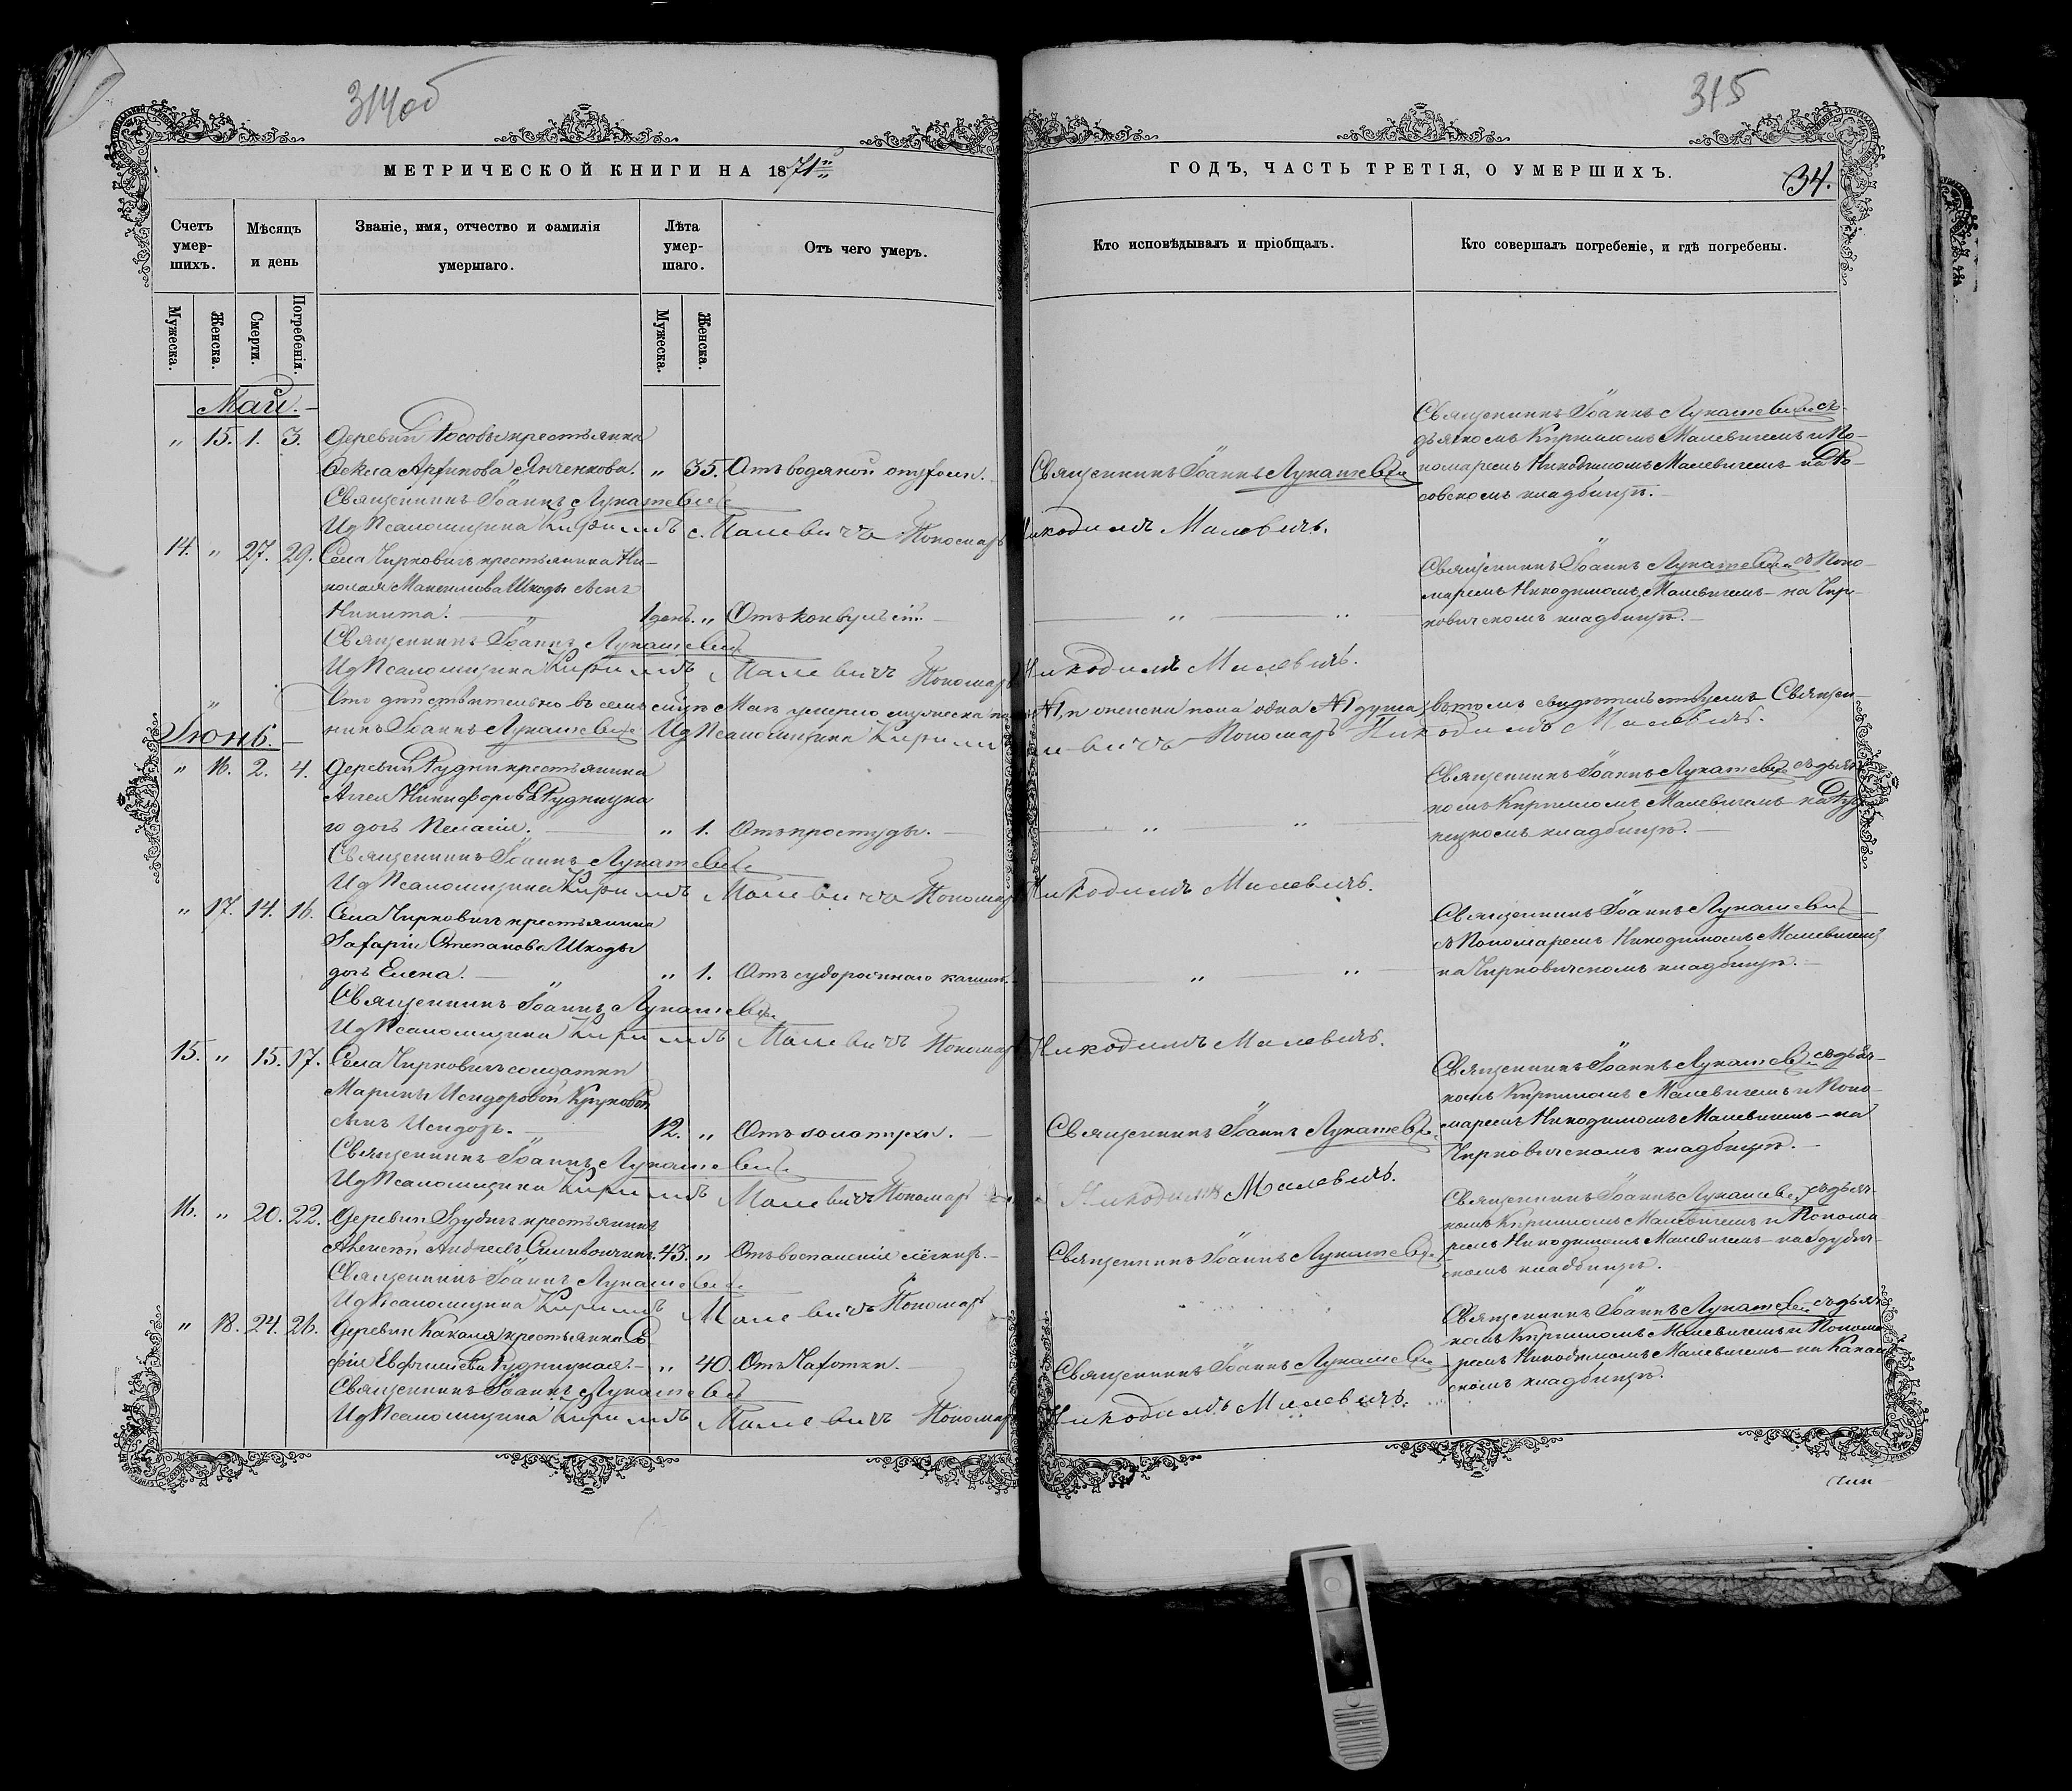 314об
315
МЕТРИЧЕСКОЙ КНИГИ НА 1871й
ГОДЪ, ЧАСТЬ ТРЕТІЯ, О УМЕРШИХЪ.
34.
Счетъ умер-шихъ.
Мѣсяцъ и день
Званіе, имя, отчество и фамилія умершаго.
Лѣта умер-шаго.
Отъ чего умеръ.
Кто исповѣдывалъ и пріобщалъ.
Кто совершалъ погребеніе, и гдѣ погребены.
Мужеска.
Женска.
Смерти.
Погребенія.
Мужеска.
Женска.
Май.
„ 15. 1. 3. Деревни Росовы крестьянка
Янченкова. „ 35. Отъ водяной
Священникъ Іоаннъ Лукашевичъ
Священникъ Іоаннъ Лукашевичъ съ
дьячкомъ Кирилломъ Малевичемъ и По-
номаремъ Никодимомъ Малевичемъ на Ро-
совскомъ кладбищѣ.
Священникъ Іоаннъ Лукашевичъ
Ид Псаломщика Кириллъ Малевичъ Пономарь Никодимъ Малевичъ.
14. „ 27. 29. Села Чирковичъ крестьянина Ни-
колая Шкоды сынъ
Никита. 1 день. „ Отъ конвульсій.
„ „
Священникъ Іоаннъ Лукашевичъ съ Поно-
маремъ Никодимомъ Малевичемъ на Чир-
ковичскомъ кладбищѣ.
Священникъ Іоаннъ Лукашевичъ
Ид Псаломщика Кириллъ Малевичъ Пономарь Никодимъ Малевичъ.
Что дѣйствительно въ семъ Маѣ умерло мужеска пола №1, и женска пола одна №1 душа, въ томъ свидѣтельствуемъ Священ-
никъ Іоаннъ Лукашевичъ Ид Псаломщика Кириллъ Малевичъ Пономарь Никодимъ Малевичъ.
Іюнь.
„ 16. 2. 4. Деревни Рудни крестьянина
Никифорова Рудницка
го дочь Пелагія. „ 1. Отъ простуды.
„ „
Священникъ Іоаннъ Лукашевичъ съ дьяч-
комъ Кирилломъ Малевичемъ на Руд
кладбищѣ.
Священникъ Іоаннъ Лукашевичъ
Ид Псаломщика Кириллъ Малевичъ Пономарь Никодимъ Малевичъ.
„ 17. 14. 16. Села Чирковичъ крестьянина
Степанова Шкоды
дочь Елена. „ 1. Отъ судорожнаго кашля.
„ „
Священникъ Іоаннъ Лукашевичъ
съ Пономаремъ Никодимомъ Малевичемъ
на Чирковичскомъ кладбищѣ.
Священникъ Іоаннъ Лукашевичъ
Ид Псаломщика Кириллъ Малевичъ Пономарь Никодимъ Малевичъ.
15. „ 15. 17. Села Чирковичъ солдатки
Марины Исидоровой
сынъ Исидоръ. 12. „ Отъ золотухи.
Священникъ Іоаннъ Лукашевичъ
Священникъ Іоаннъ Лукашевичъ съ дьяч-
комъ Кирилломъ Малевичемъ и Поно-
маремъ Никодимомъ Малевичемъ на
Чирковичскомъ кладбищѣ.
Священникъ Іоаннъ Лукашевичъ
Ид Псаломщика Кириллъ Малевичъ Пономарь Никодимъ Малевичъ.
16. „ 20. 22. Деревни Здудичъ крестьянинъ
Алексѣй Андреевъ 43. „ Отъ воспаленія лёгкихъ.
Священникъ Іоаннъ Лукашевичъ
Священникъ Іоаннъ Лукашевичъ съ дьяч-
комъ Кирилломъ Малевичемъ и Понома-
ремъ Никодимомъ Малевичемъ на Здудич-
скомъ кладбищѣ.
Священникъ Іоаннъ Лукашевичъ
Ид Псаломщика Кириллъ Малевичъ Пономарь
„ 18. 24. 26. Деревни Какаля крестьянка Со
фія Рудницкая. „ 40. Отъ Чахотки.
Священникъ Іоаннъ Лукашевичъ
Священникъ Іоаннъ Лукашевичъ съ дьяч-
комъ Кирилломъ Малевичемъ и Понома-
ремъ Никодимомъ Малевичемъ на Какаль
скомъ кладбищѣ.
Священникъ Іоаннъ Лукашевичъ
Ид Псаломщика Кириллъ Малевичъ Пономарь Никодимъ Малевичъ.